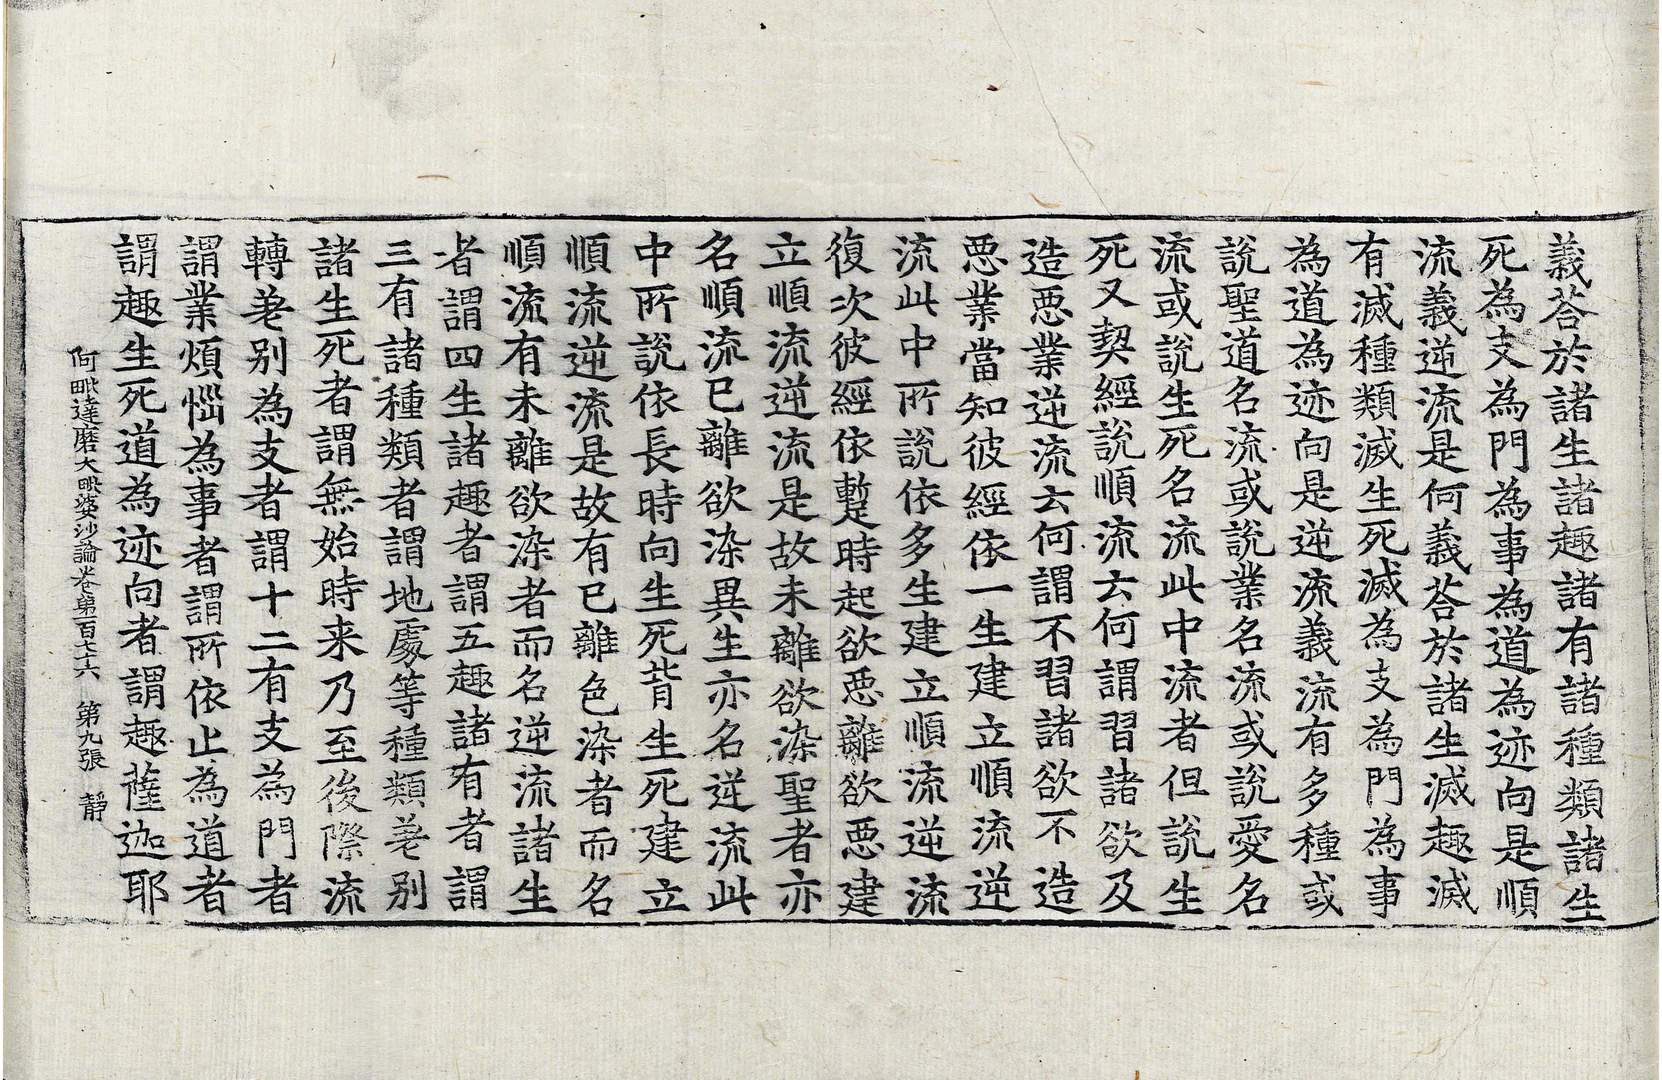 義荅於諸生諸趣諸有諸種類諸生
死為支為門為事為道為迹向是順
流義逆流是何義荅於諸生滅趣滅
有滅種類滅生死滅為支為門為事
為道為迹向是逆流義流有多種或
說聖道名流或說業名流或說愛名
流或說生死名流此中流者但說生
死又契經說順流云何謂習諸欲及
造惡業逆流云何謂不習諸欲不造
惡業當知彼經依一生建立順流逆
流此中所說依多生建立順流逆流
復次彼經依蹔時起欲惡離欲惡建
立順流逆流是故未離欲染聖者亦
名順流已離欲染異生亦名逆流此
中所說依長時向生死背生死建立
順流逆流是故有已離色染者而名
順流有未離欲染者而名逆流諸生
者謂四生諸趣者謂五趣諸有者謂
三有諸種類者謂地處等種類差別
諸生死者謂無始時来乃至後際流
轉差別為支者謂十二有支為門者
謂業煩惱為事者謂所依止為道者
謂趣生死道為迹向者謂趣薩迦耶
阿毗達磨大毗婆沙論卷第一百七十六　第九張　靜